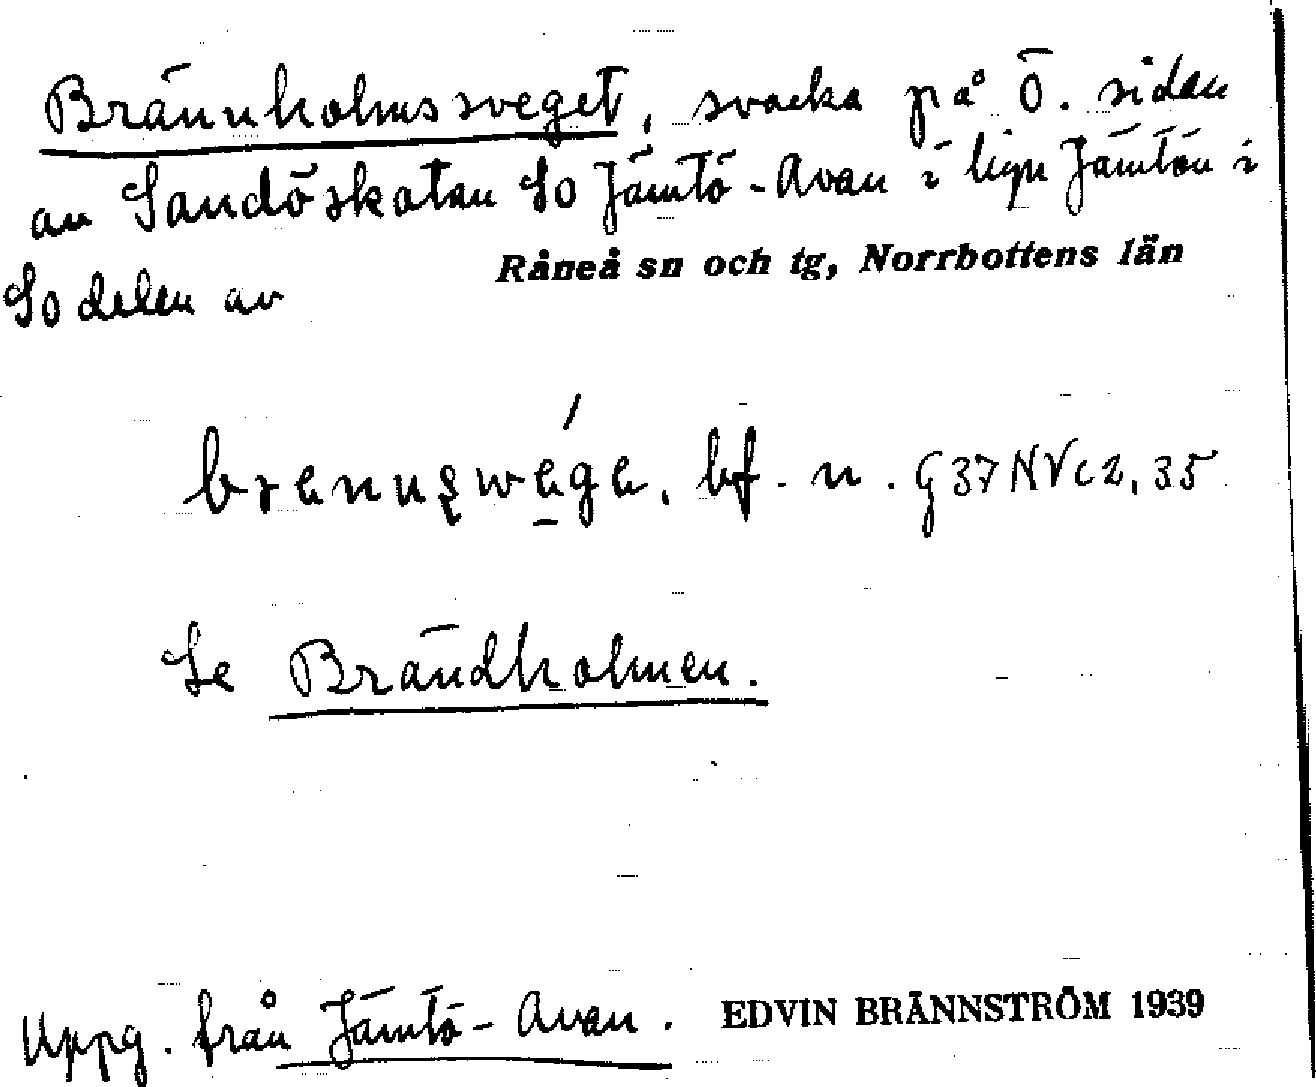 Brännholmssveget, svacka på Ö. sidan
av Sandöskatan SO Jämtö-Avan i byn Jämtön i
SO delen av Råneå sn och tg, Norrbottens län
bf. n. G37NVc2,35
Se Brändholmen.
Uppg. från Jämtö-Avan. EDVIN BRÄNNSTRÖM 1939